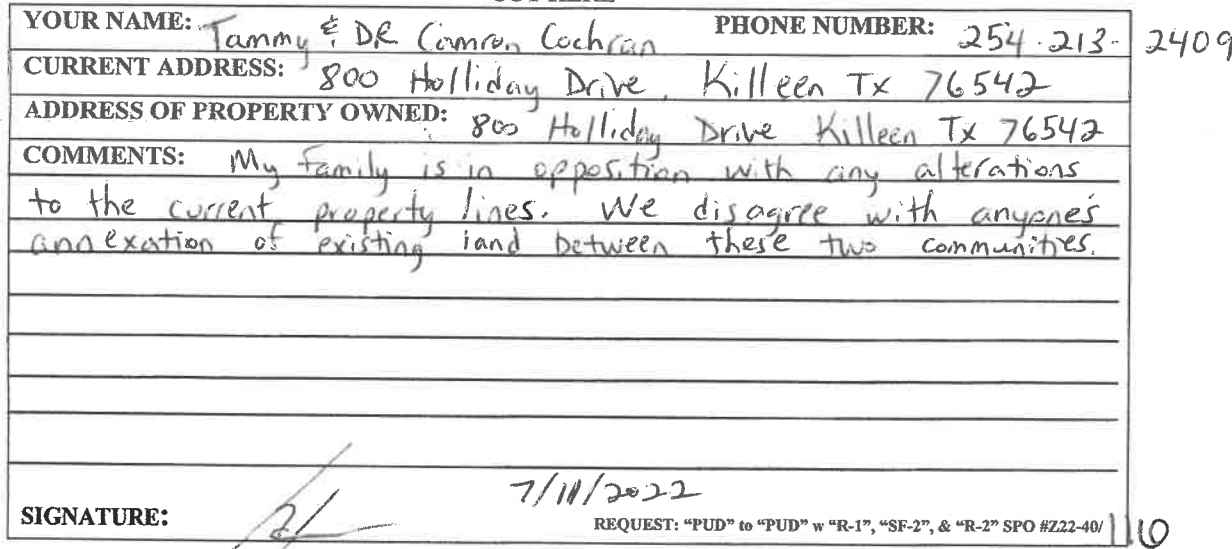 YOUR NAME: Tammy & DR Camron Cochran PHONE NUMBER: 254-213-2409
CURRENT ADDRESS: 800 Holliday Drive, Killeen Tx 76542
ADDRESS OF PROPERTY OWNED: 800 Holliday Drive Killeen Tx 76542
COMMENTS: My Family is in opposition with any alterations
to the current property lines. We disagree with anyone's
annexation of existing land between these two communities.
7/11/2022
SIGNATURE:
REQUEST: "PUD" to "PUD" w "R-1", "SF-2", & "R-2" SPO #Z22-40/